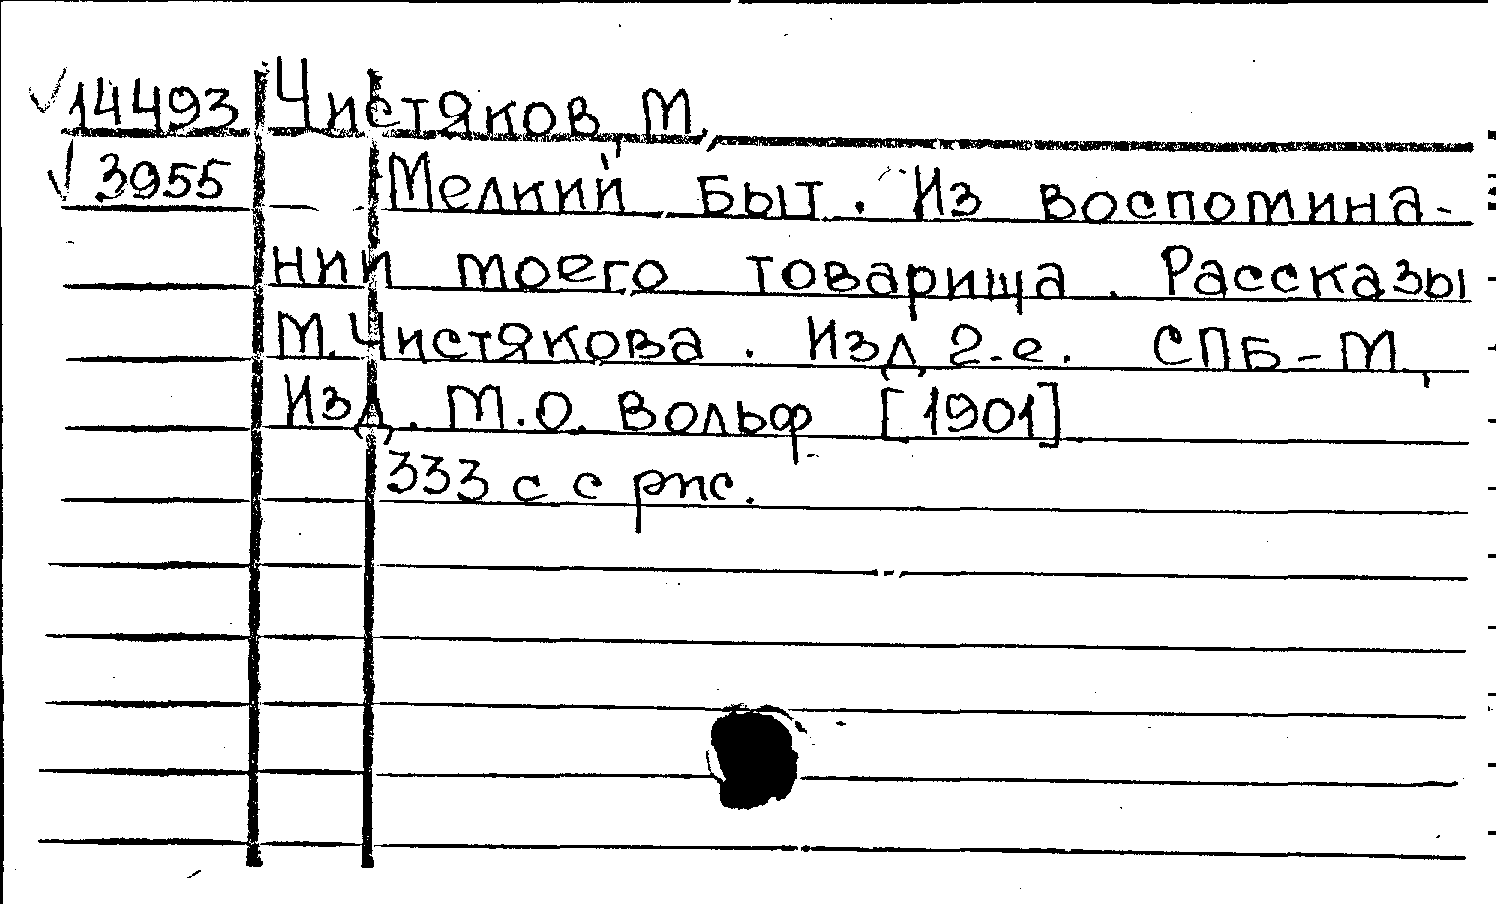 14493 Чистяков, М.
3955 Мелкий быт. Из воспомина-
нии моего товарища. Рассказы
М. Чистякова. Изд 2-е. СПБ-М,
Изд. М.О. Вольф [1901]
333 с с рис.